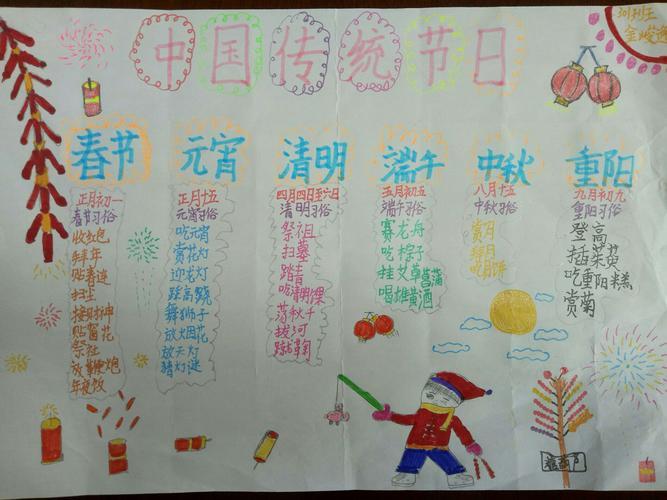 中国传统节日
春节
正月初一
春节习俗
收红包
拜年
贴春连
扫尘
接财神
贴窗花
祭社
放鞭炮
年夜饭
元宵
正月十五
元宵习俗
吃元宵
赏花灯
迎龙灯
跩高跷
舞狮子
放烟花
放天灯
猜灯迷
清明
四月四日至六日
清明习俗
祭祖
扫墓
踏青
吃清明粿
荡秋千
拔河
蹴鞠
端午
五月初五
端午习俗
赛龙舟
吃粽子
挂艾草菖蒲
喝雄黄酒
中秋
八月十五
中秋习俗
赏月
拜月
吃月饼
重阳
九月初九
重阳习俗
登高
插茱萸
吃重阳糕
赏菊